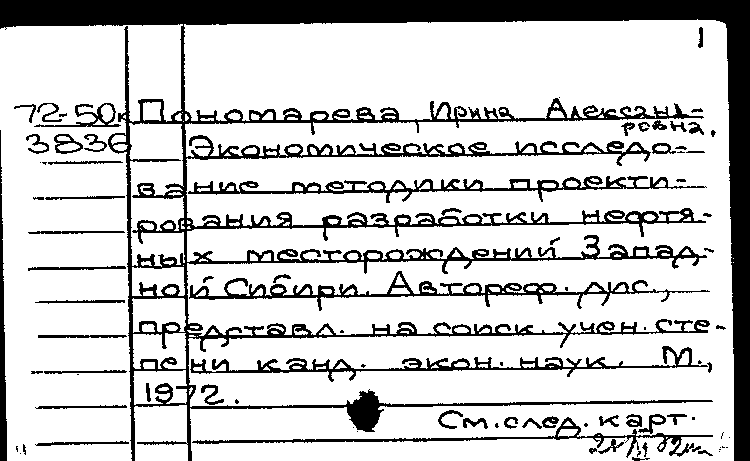 1
72-50к Пономарева, Ирина Александ-
ровна.
3836 Экономическое исследо-
вание методики проекти-
рования разработки нефтя-
ных месторождений Запад-
ной Сибири. Автореф. дис.,
представл. на соиск. учен. сте-
пени канд. экон. наук. М.,
1972.
См. след. карт.